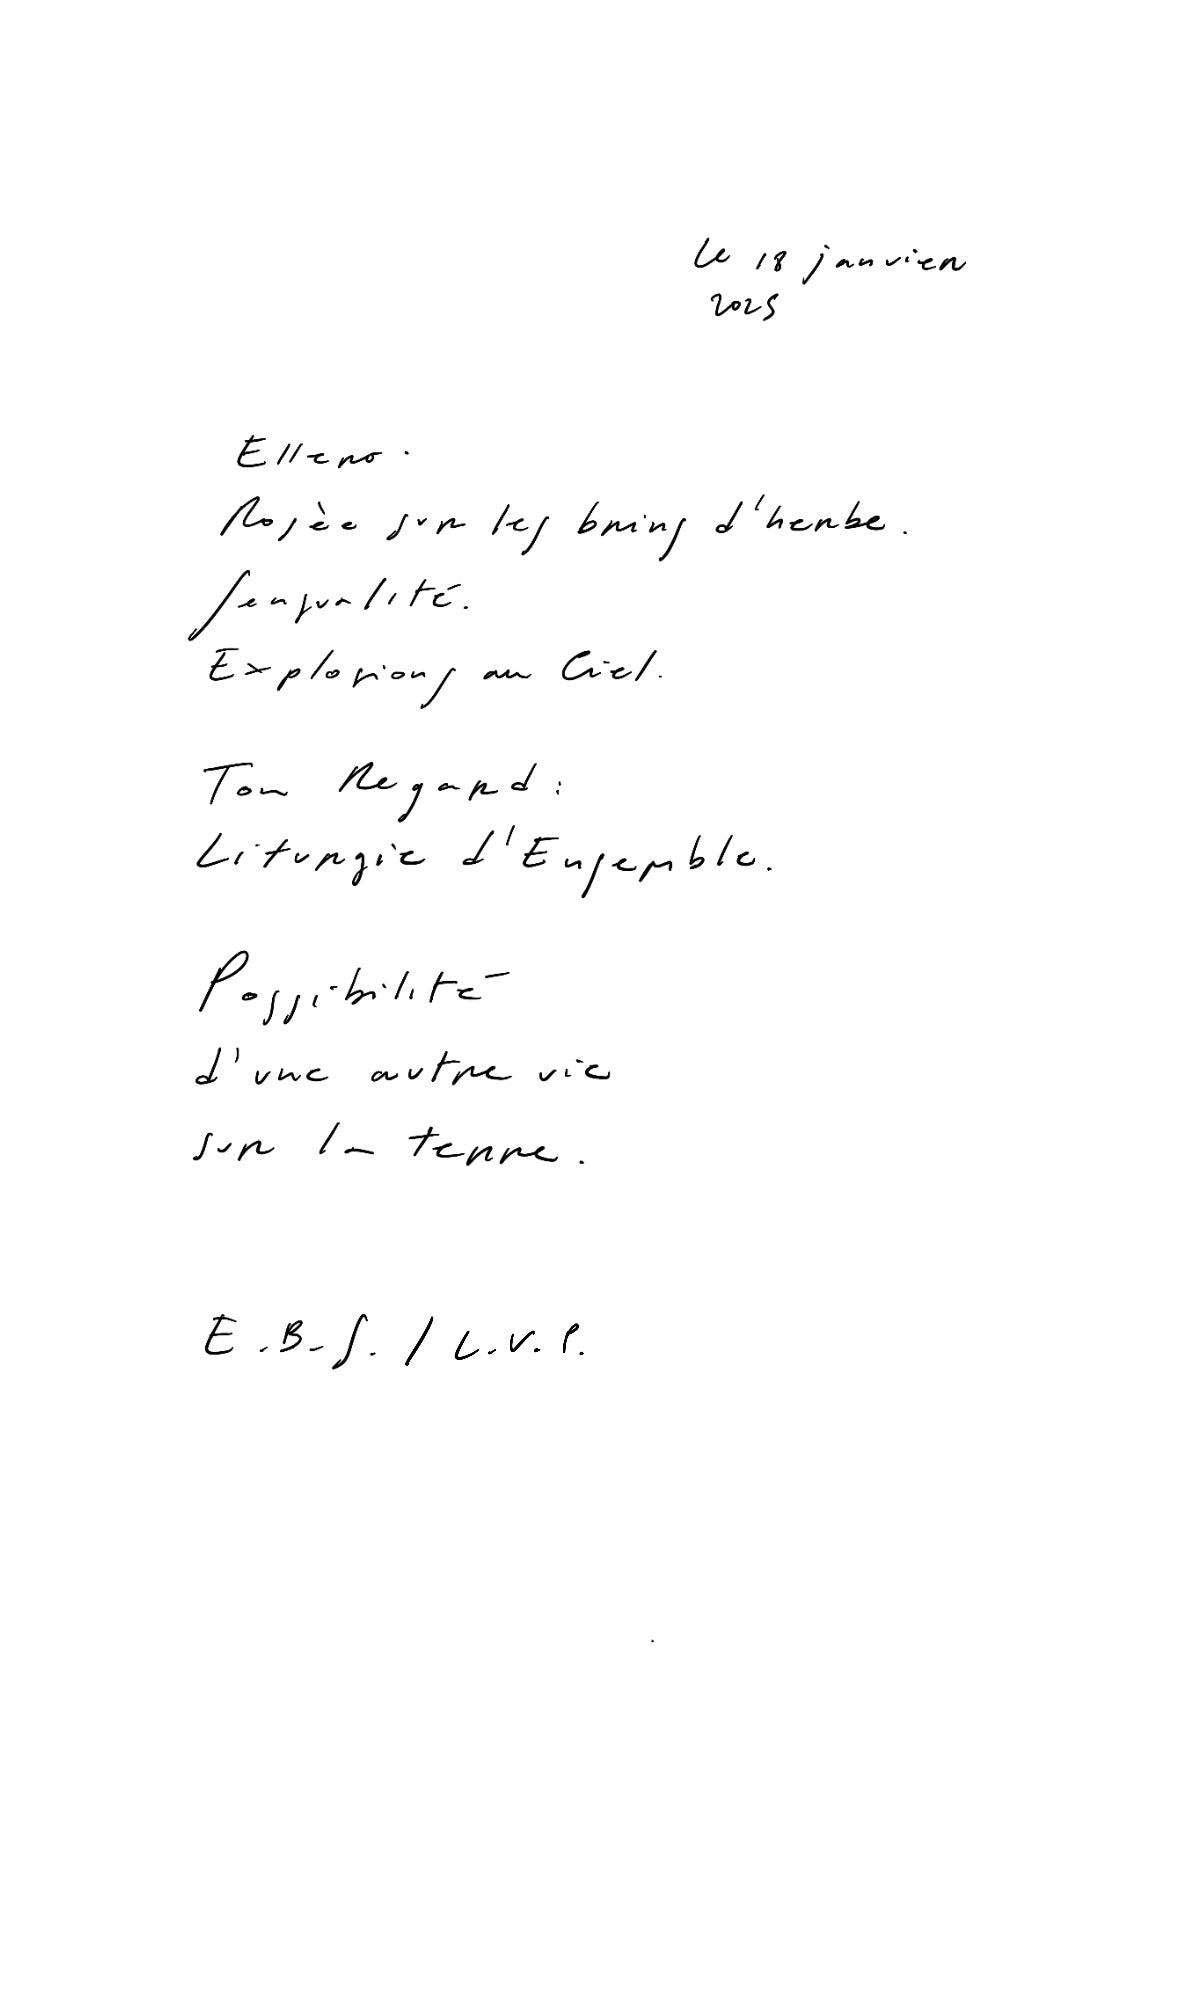 Le 18 janvier
2025
Ellero.
Rosèe sur les brins d'herbe.
Sensualité.
Explosions au Ciel.
Ton Regard :
Liturgie d'Ensemble.
Possibilité
d'une autre vie
sur la terre.
E.B.S. / L.V.P.